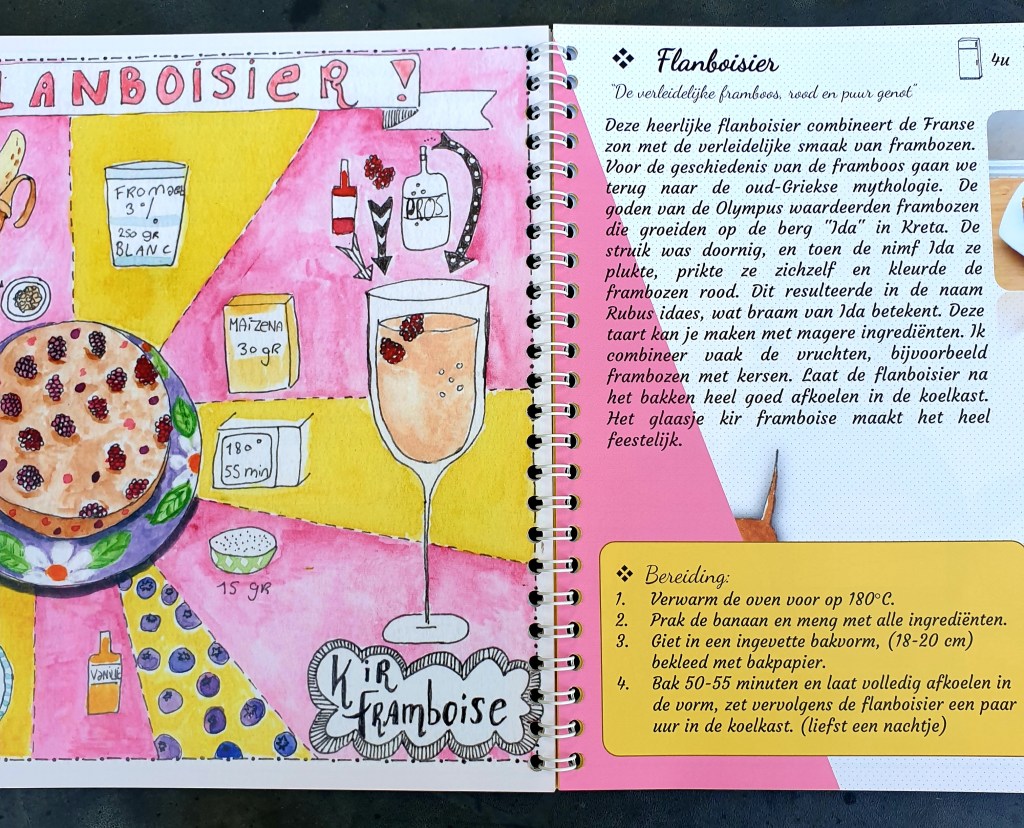 LANBOISIER !
FROMAGE
3%
250 gR
BLANC
PROS
MAIZENA
30 gR
180°
55 min
15 gR
VANILLE
KIR
FRAMBOISE
❖ Flanboisier
4u
"De verleidelijke framboos, rood en puur genot"
Deze heerlijke flanboisier combineert de Franse
zon met de verleidelijke smaak van frambozen.
Voor de geschiedenis van de framboos gaan we
terug naar de oud-Griekse mythologie. De
goden van de Olympus waardeerden frambozen
die groeiden op de berg "Ida" in Kreta. De
struik was doornig, en toen de nimf Ida ze
plukte, prikte ze zichzelf en kleurde de
frambozen rood. Dit resulteerde in de naam
Rubus idaes, wat braam van Ida betekent. Deze
taart kan je maken met magere ingrediënten. Ik
combineer vaak de vruchten, bijvoorbeeld
frambozen met kersen. Laat de flanboisier na
het bakken heel goed afkoelen in de koelkast.
Het glaasje kir framboise maakt het heel
feestelijk.
❖ Bereiding:
1. Verwarm de oven voor op 180°C.
2. Prak de banaan en meng met alle ingrediënten.
3. Giet in een ingevette bakvorm, (18-20 cm)
bekleed met bakpapier.
4. Bak 50-55 minuten en laat volledig afkoelen in
de vorm, zet vervolgens de flanboisier een paar
uur in de koelkast. (liefst een nachtje)